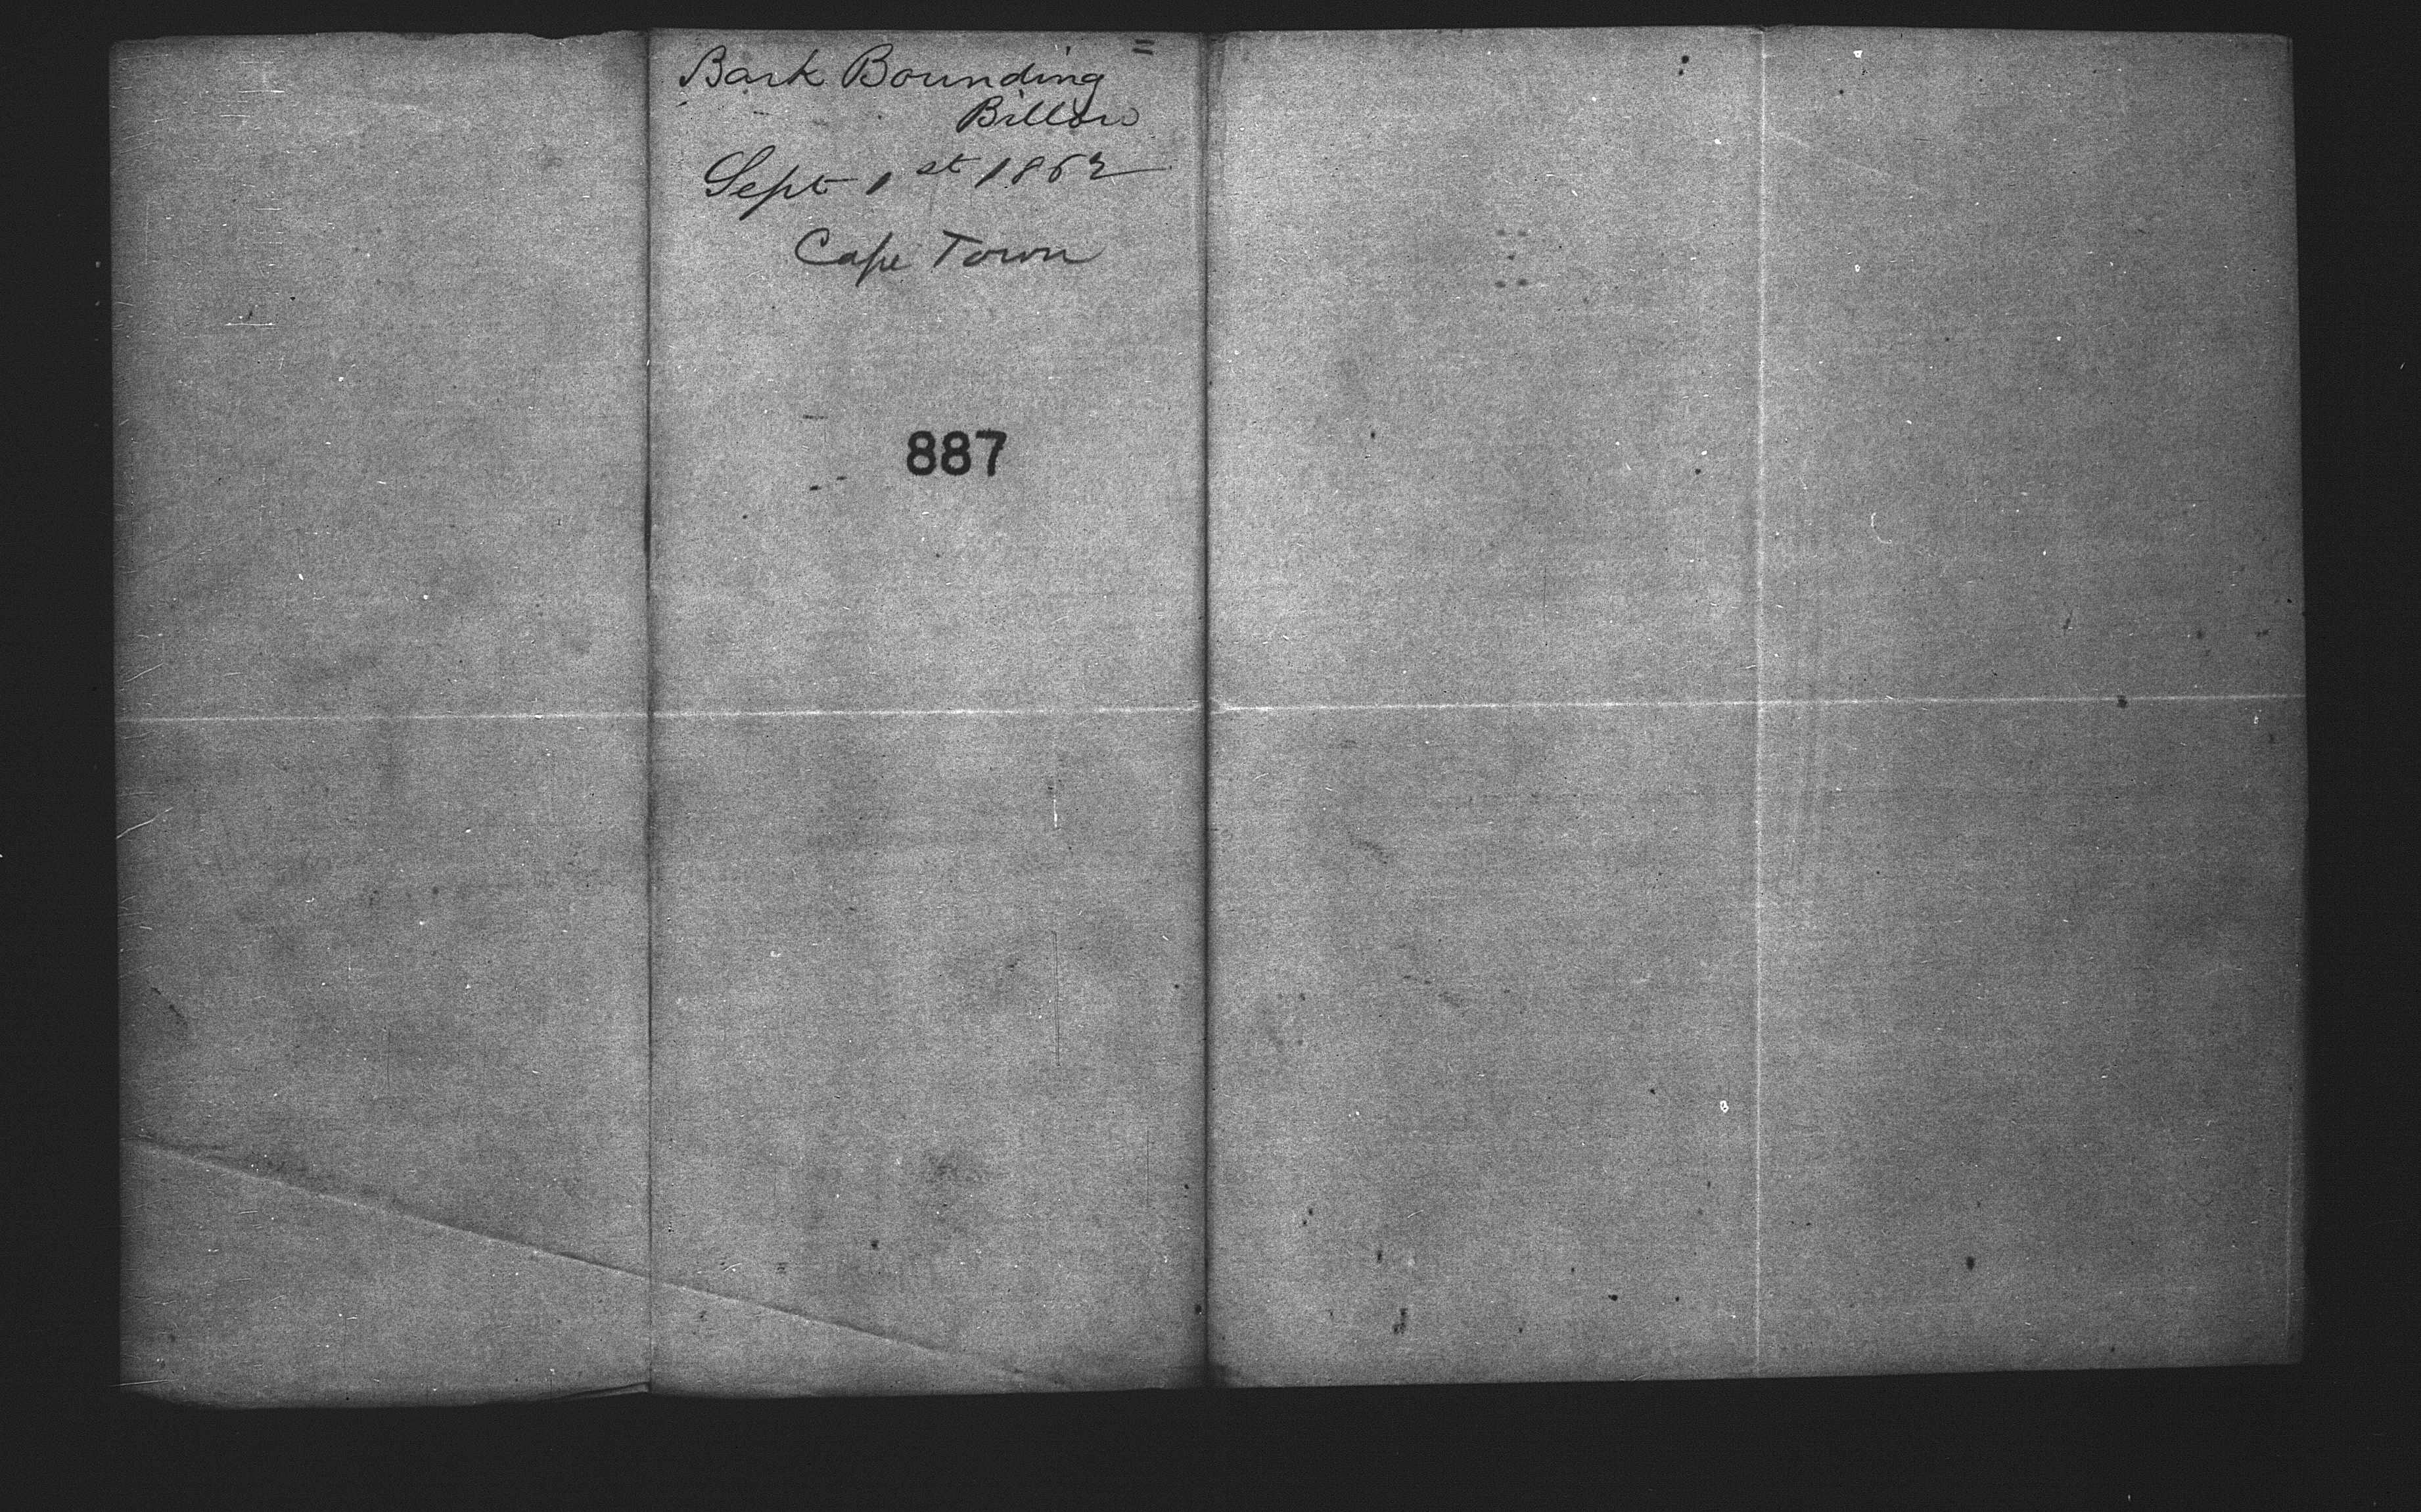 Bark Bounding =
Billow
Sept 1st 1862
Cape Town
887